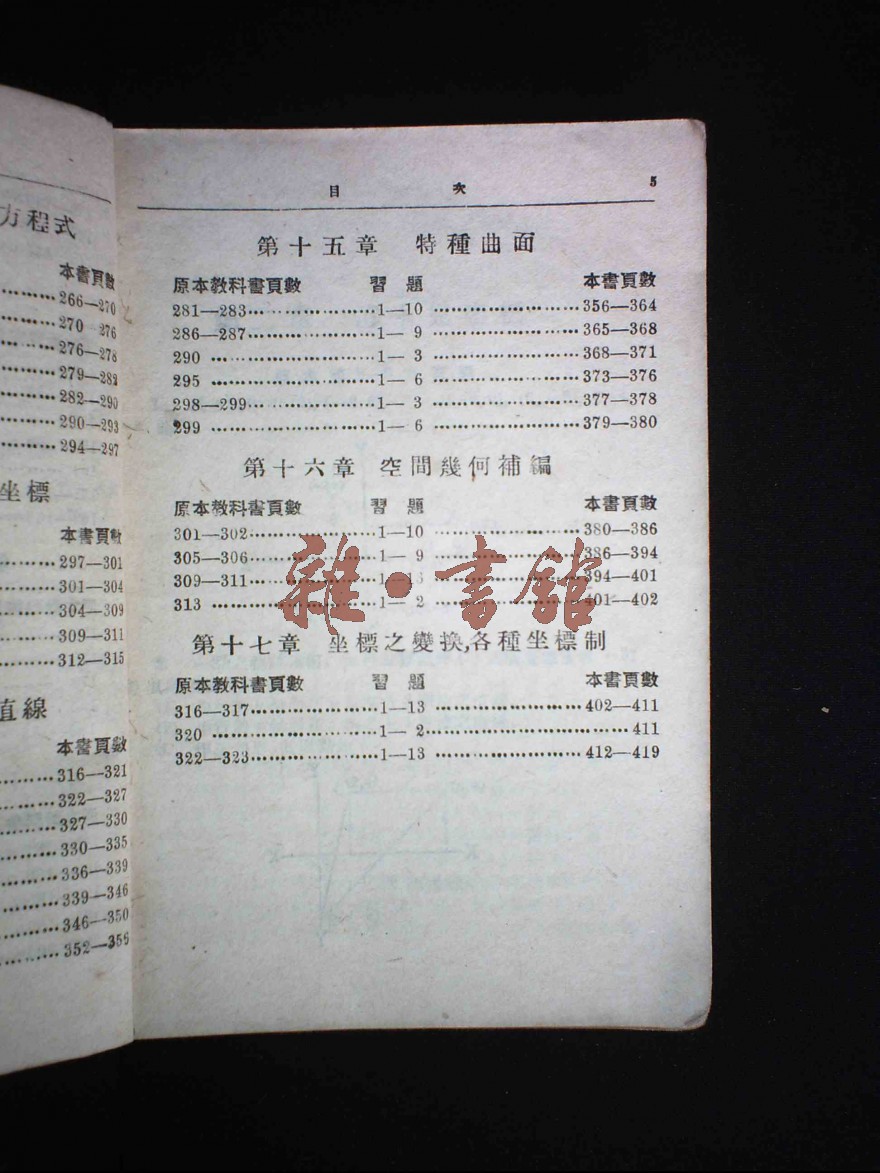 方程式
本書頁數
266—270
270 276
276—278
279—282
282—290
290—293
294—297
坐標
本書頁數
297—301
301—304
304—309
309—311
312—315
直線
本書頁數
316—321
322—327
327—330
330—335
336—339
339—346
346—350
352—356
目 次 5
第十五章 特種曲面
原本教科書頁數 習題 本書頁數
281—283 1—10 356—364
286—287 1— 9 365—368
290 1— 3 368—371
295 1— 6 373—376
298—299 1— 3 377—378
299 1— 6 379—380
第十六章 空間幾何補編
原本教科書頁數 習題 本書頁數
301—302 1—10 380—386
305—306 1— 9 386—394
309—311 1—13 394—401
313 1— 2 401—402
雜·書館
第十七章 坐標之變換,各種坐標制
原本教科書頁數 習題 本書頁數
316—317 1—13 402—411
320 1— 2 411
322—323 1—13 412—419